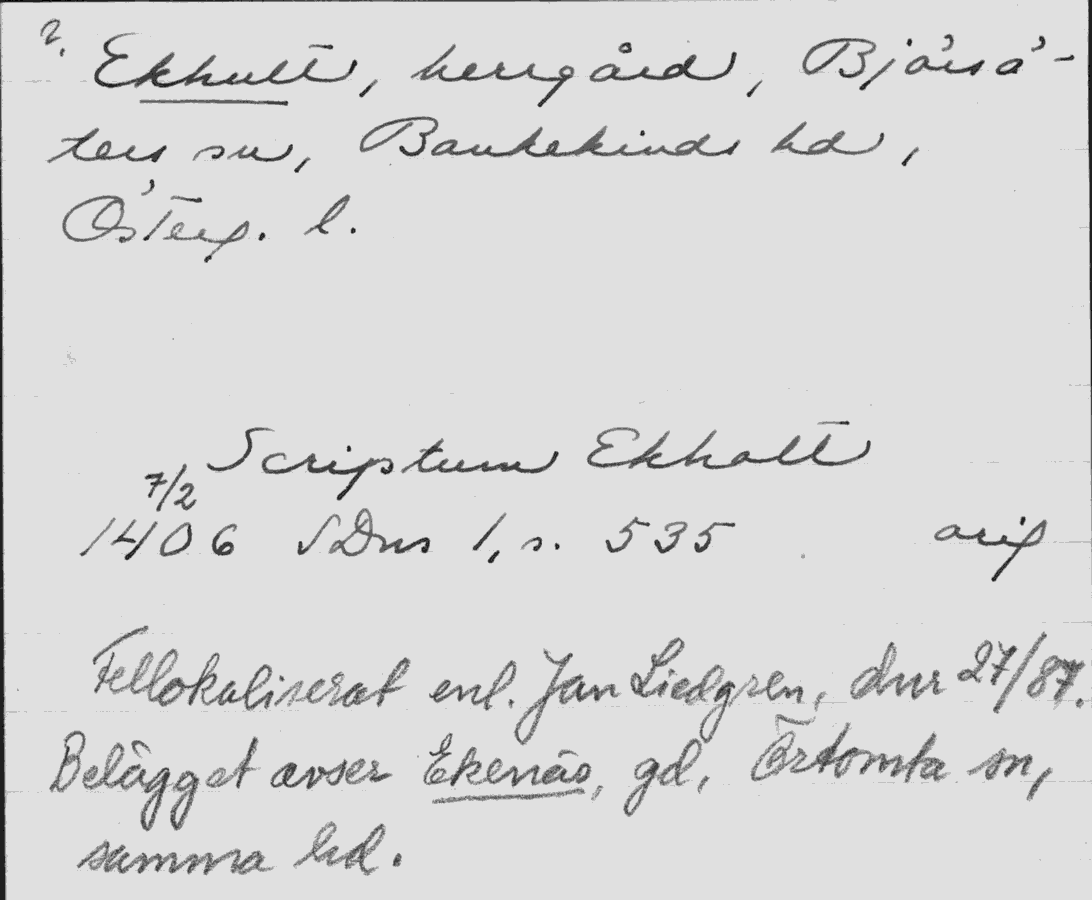 ?. Ekhult, herrgård, Björsä-
ters sn, Bankekinds hd,
Österg. l.
Scriptum Ekholt
7/2
1406 SDns 1, s. 535 orig
Fellokaliserat enl. Jan Liedgren, dnr 27/87.
Belägget avser Ekenäs, gd, Örtomta sn,
samma hd.